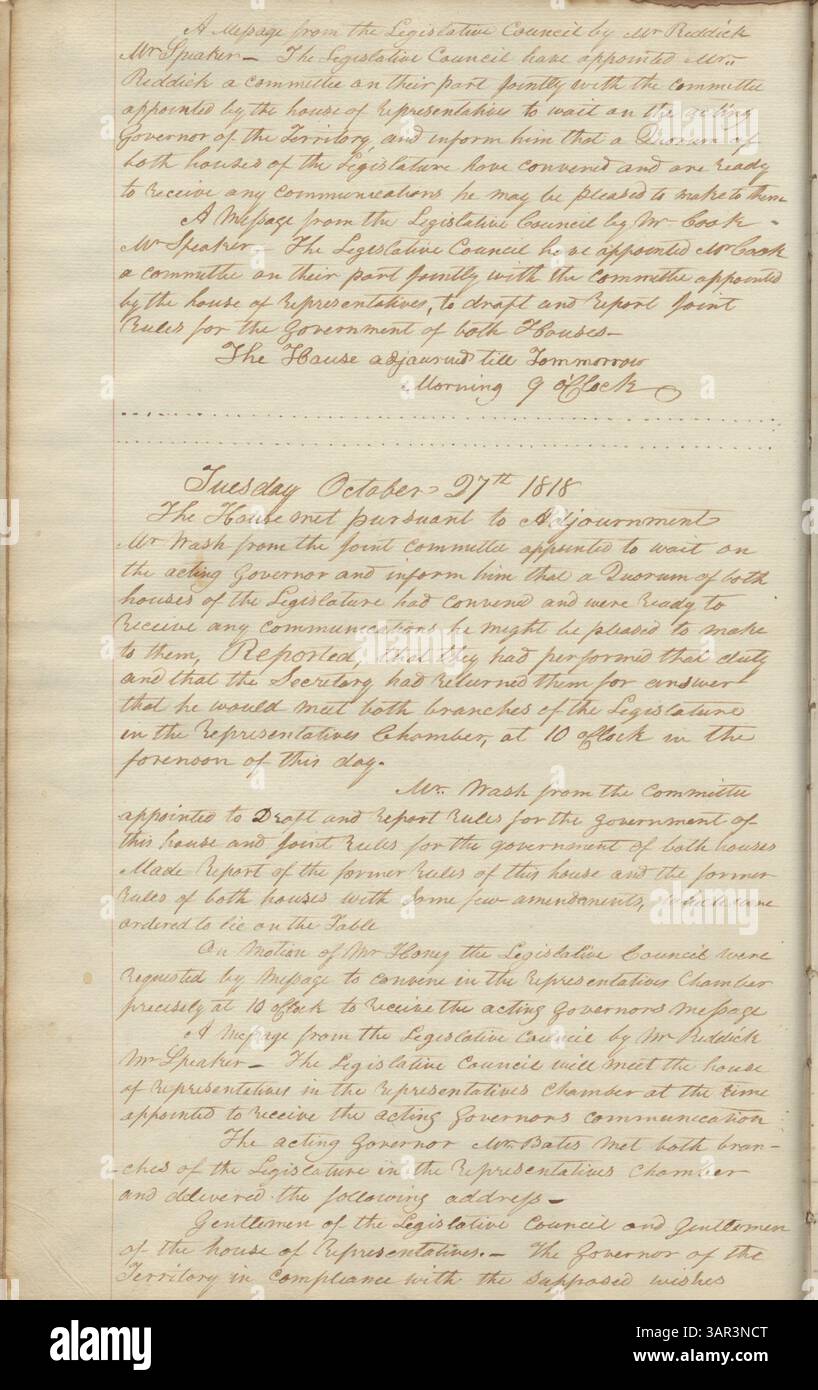 A Message from the Legislative Council by Mr Reddick
Mr Speaker — The Legislative Council have appointed Mr.
Reddick a committee on their part jointly with the committee
appointed by the house of representatives to wait on the acting
Governor of the Territory, and inform him that a Quorum of
both houses of the Legislature have convened and are ready
to receive any communications he may be pleased to make to them
A Message from the Legislative Council by Mr Cook -
Mr Speaker — The Legislative Council have appointed Mr Cook
a committee on their part jointly with the committee appointed
by the house of representatives, to draft and report joint
rules for the Government of both Houses —
The House adjourned till Tommorrow
Morning 9 o'Clock
Tuesday October 27th 1818
The House met pursuant to Adjournment
Mr Wash from the joint committee appointed to wait on
the acting Governor and inform him that a Quorum of both
houses of the Legislature had convened and were ready to
receive any communications he might be pleased to make
to them, Reported, that they had performed that duty
and that the Secretary had returned them for answer
that he would meet both branches of the Legislature
in the Representatives Chamber, at 10 o'Clock in the
forenoon of this day.
Mr. Wash from the Committee
appointed to Draft and report rules for the government of
this house and joint rules for the government of both houses
Made report of the former rules of this house and the former
rules of both houses with some few amendments, which were
ordered to lie on the Table
On Motion of Mr Honey the Legislative Council were
requested by Message to convene in the representatives Chamber
precisely at 10 o'Clock to receive the acting Governors Message
A Message from the Legislative Council by Mr Reddick
Mr Speaker — The Legislative Council will meet the house
of representatives in the representatives Chamber at the time
appointed to receive the acting Governors communication
The acting Governor Mr. Bates met both bran-
-ches of the Legislature in the representatives Chamber
and delivered the following address —
Gentlemen of the Legislative Council and Gentlemen
of the house of Representatives. — The Governor of the
Territory in compliance with the supposed wishes
alamy
Image ID: 3AR3NCT
www.alamy.com